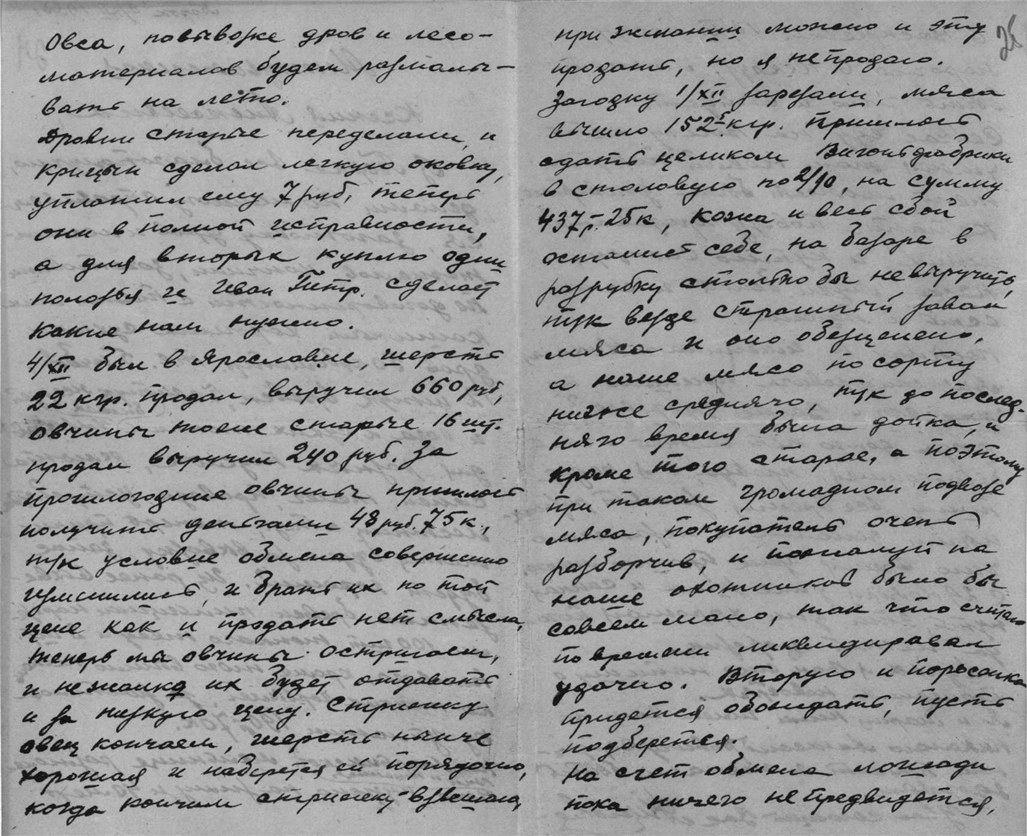 Овса, повывозке дров и лесо-
материалов будем размалы-
вать на лето.
Дровни старые переделали, и
Крицын сделал легкую оковку,
уплатили ему 7 руб, теперь
они в полной исправности,
а для вторых куплю одни
полозья и Иван Петр. сделает
какие нам нужно.
4/XII был в Ярославле, шерсть
22 кгр. продал, выручил 660 руб,
овчины тоже старые 16 шт.
продал выручил 240 руб. За
прошлогодние овчины пришлось
получить деньгами 48 руб. 75 к.,
т/к условие обмена совершенно
изменились, и брать их по той
цене как и продать нет смысла,
теперь мы овчины остригаем,
и не жалко их будет отдавать
и за низкую цену. Стрижку
овец кончаем, шерсть нынче
хорошая и наберется ей порядочно,
когда кончим стрижку взвешаю,
при желании можно и эту
продать, но я не продаю.
Загодку 1/XII зарезали, мяса
вышло 152 кгр. пришлось
сдать целиком фабрики
в столовую по 2/90, на сумму
437 р. 25 к, кожа и весь сбой
остались себе, на базаре в
разрубку столько бы не выручить,
т/к везде страшный завал
мяса и оно обезценено,
а наше мясо по сорту
ниже среднячо, т/к до послед-
няго время была дойка, и
кроме того старая, а поэтому
при таком громадном подвозе
мяса, покупатель очень
разборчив, и пожалуй на
наше охотников было бы
совсем мало, так что считаю
по времени ликвидировал
удачно. Вторую и поросенка
придется обождать, пусть
подберется.
На счет обмена лошади
пока ничего не предвидется,
26